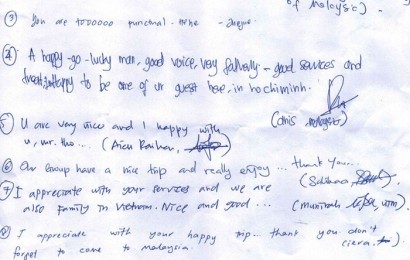 of Malaysia).
③ You are tooooooo punctual - hehe -
④ A happy-go-lucky man, good voice, very - good services and
happy to be one of ur guest here, in hochiminh.
(chis
⑤ U are very nice and I happy with
u, mr. tho... (Aien
⑥ Our Group have a nice trip and really enjoy... thank you...
⑦ I appreciate with your services and we are
also family in Vietnam. Nice and good... (Munirah
⑧ I appreciate with your happy trip... thank you don't
forget to come to malaysia.